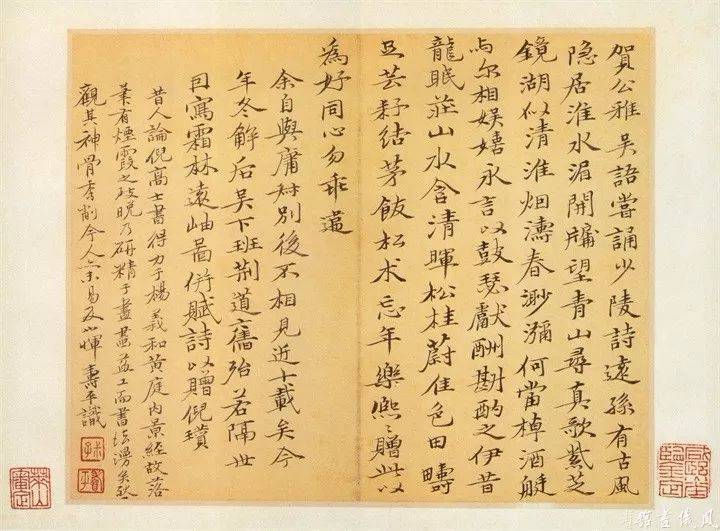 賀公雅吳語嘗誦少陵詩遠孫有古風
隐居淮水湄開牖望青山尋真歌紫芝
鏡湖似清淮烟濤春渺瀰何當棹酒艇
与尔相娱嬉永言以鼓瑟獻酬斟酌之伊昔
龍眠莊山水含清暉松桂蔚佳色田疇
且芸耔结茅飯松术忘年樂熙〻贈此以
為好同心勿乖違
余自與庸别後不相見近十載矣今
年冬解后吳下班荆道舊殆若隔世
因寫霜林遠岫啚併賦詩以贈倪瓚
昔人論倪高士書得力于楊義和黄庭内景經故落
筆有煙霞之致晚乃研精于畫畫益工而書法
觀其神骨秀削令人 惲壽平識
壽平